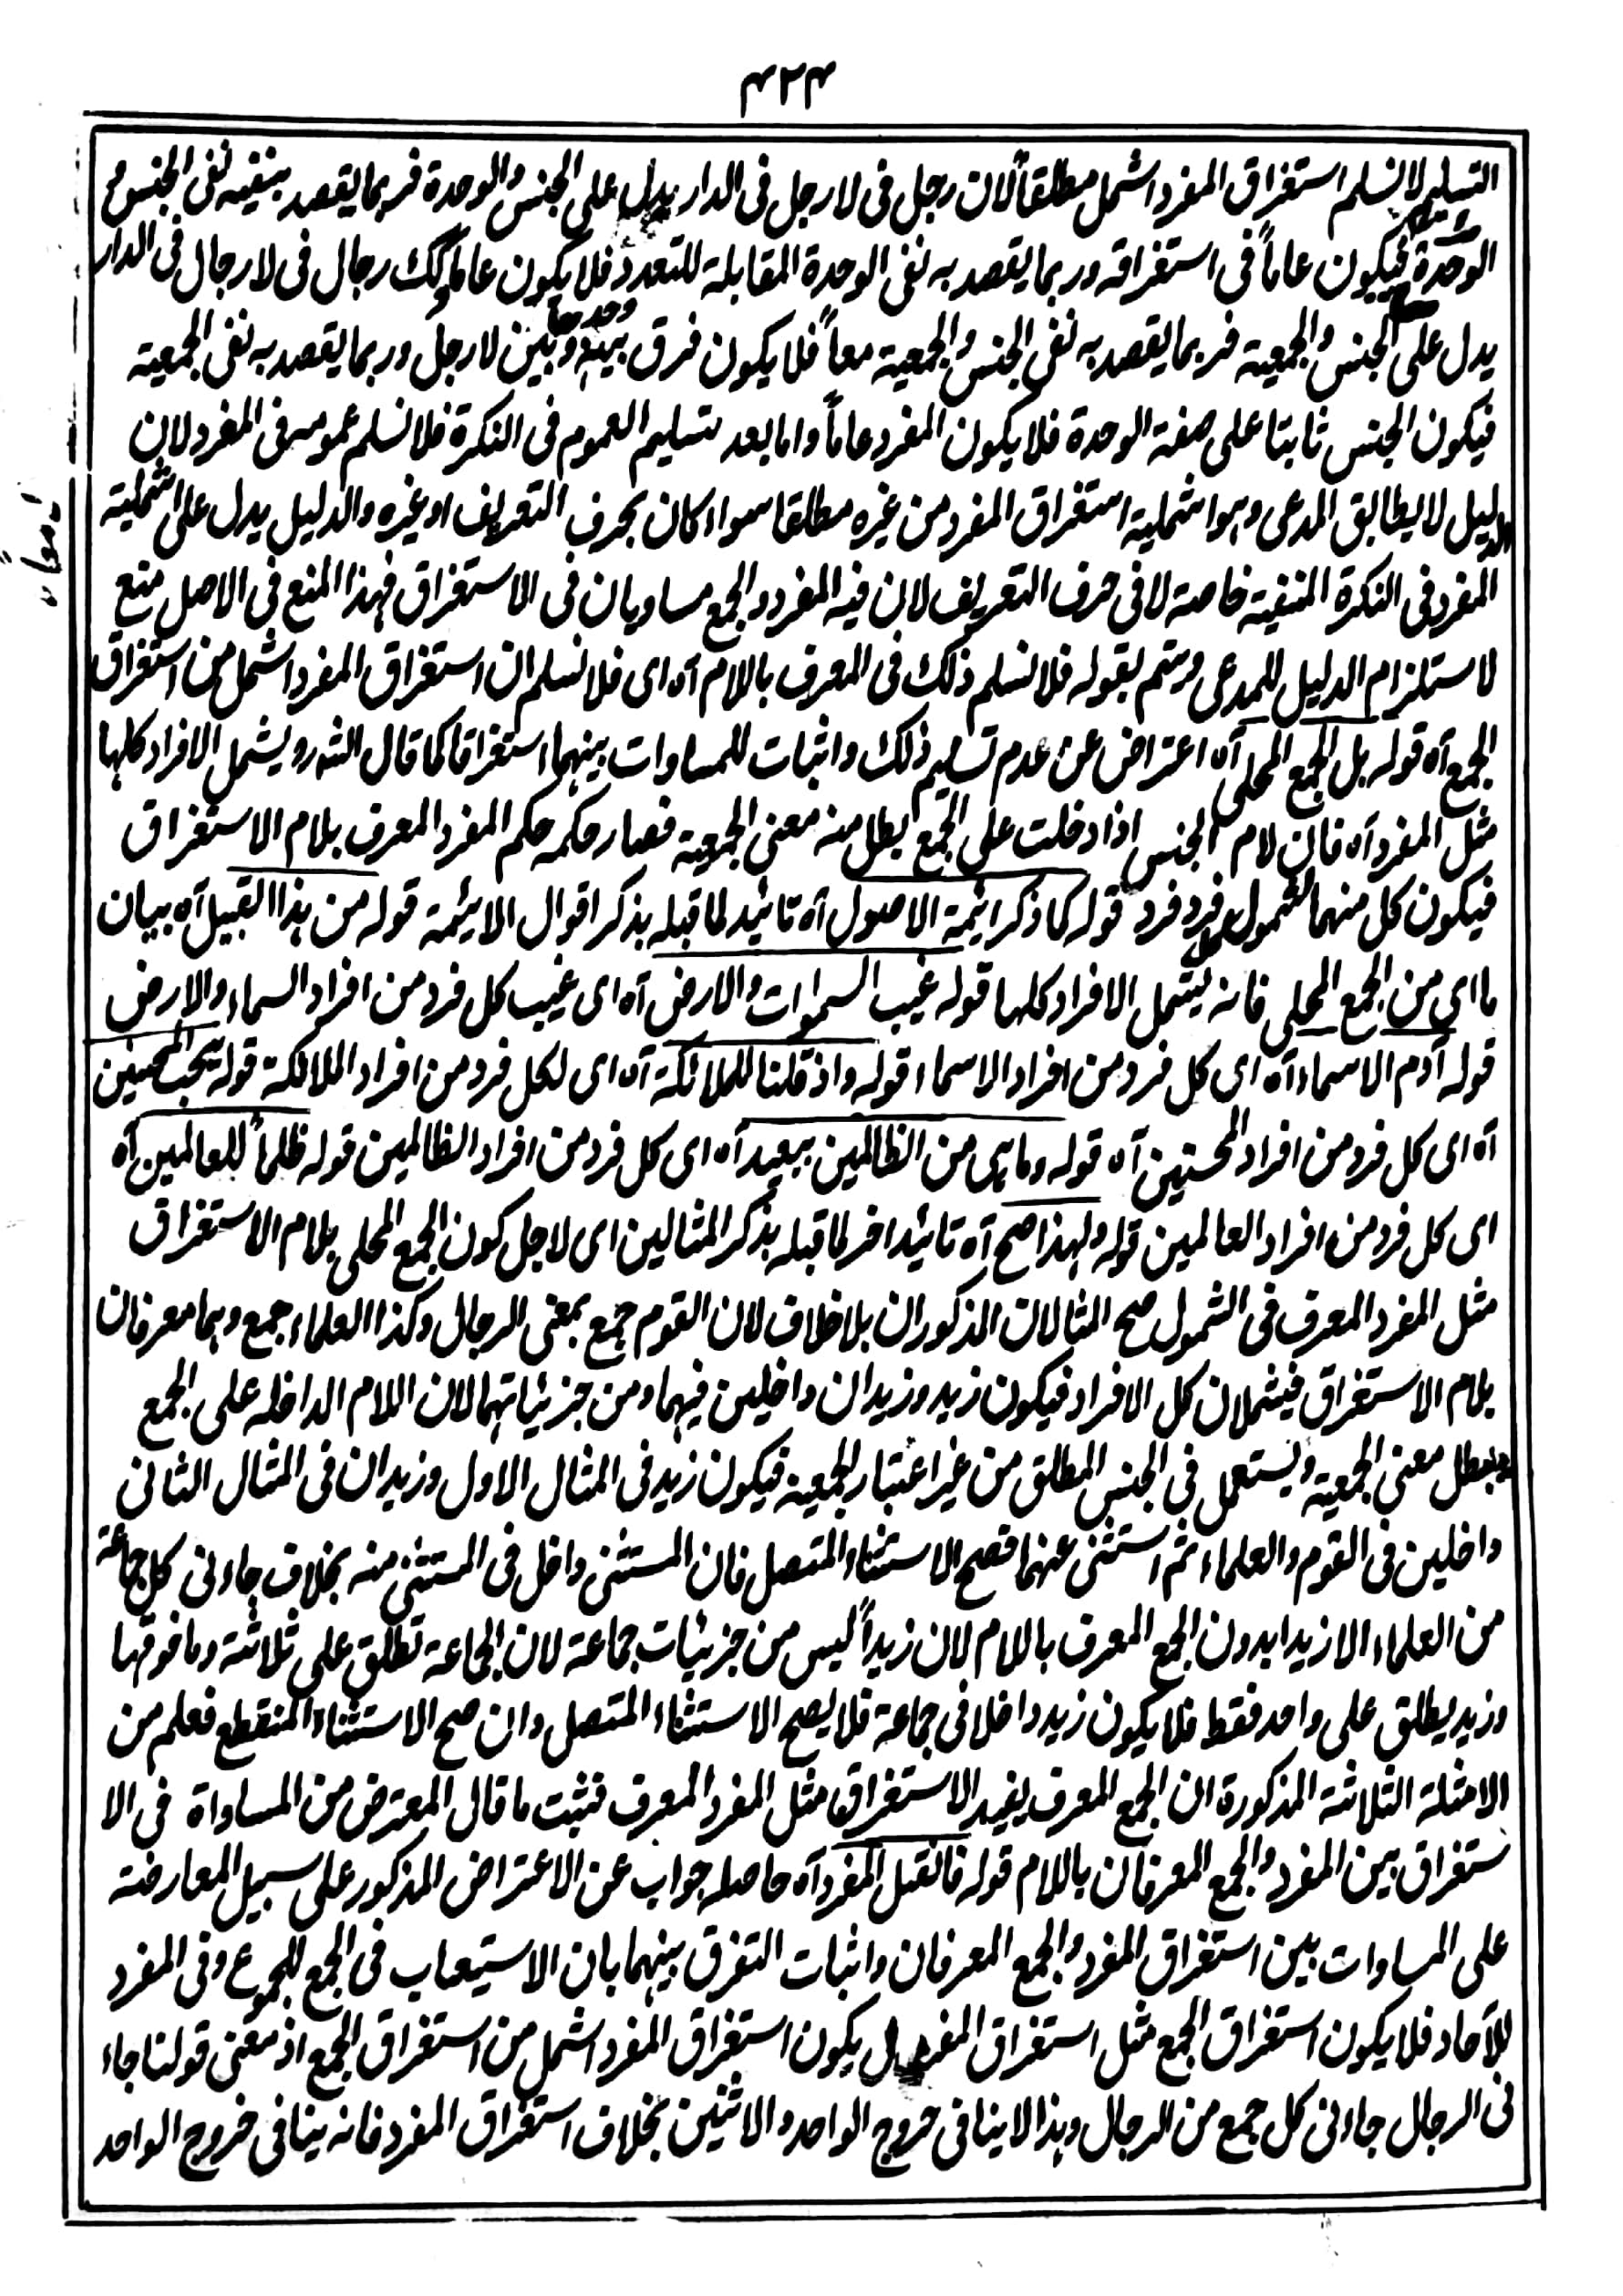 ۴۲۴
التسليم لا نسلم استغراق المفرد اشمل مطلقاً لان رجل فى لا رجل فى الدار يدل على الجنس والوحدة فربما يقصد بنفيه نفى الجنس مع
الوحدة فيكون عاماً فى استغراقه وربما يقصد به نفى الوحدة المقابلة للتعدد فلا يكون عاما وكك رجال فى لا رجال فى الدار
يدل على الجنس والجمعية فربما يقصد به نفى الجنس والجمعية معاً فلا يكون فرق بينه وبين لا رجل وربما يقصد به نفى الجمعية
وحدها
فيكون الجنس ثابتا على صفة الوحدة فلا يكون المفرد عاماً واما بعد تسليم العموم فى النكرة فلا نسلم عمومه فى المفرد لان
الدليل لا يطابق المدعى وهو اشملية استغراق المفرد من غيره مطلقا سواء كان بحرف التعريف او غيره والدليل يدل على اشملية
المفرد فى النكرة المنفية خاصة لا فى حرف التعريف لان فيه المفرد والجمع مساويان فى الاستغراق فهذا المنع فى الاصل منع
لاستلزام الدليل للمدعى ويتم بقوله فلا نسلم ذلك فى المعرف باللام آه اى فلا نسلم ان استغراق المفرد اشمل من استغراق
الجمع آه قوله بل الجمع المحلى آه اعتراض عن عدم تسليم ذلك واثبات للمساوات بينهما استغراقا كما قال الشه رو يشمل الافراد كلها
مثل المفرد آه فان لام الجنس اذا دخلت على الجمع ابطل منه معنى الجمعية فصار حكمه حكم المفرد المعرف بلام الاستغراق
فيكون كل منهما لشمول فرد فرد قوله كما ذكر ائمة الاصول آه تائيد لما قبله بذكر اقوال الائمة قوله من هذا القبيل آه بيان
ما اى من الجمع المحلى فانه يشمل الافراد كلها قوله غيب السموات والارض آه اى غيب كل فرد من افراد السماء والارض
قوله آدم الاسماء آه اى كل فرد من افراد الاسماء قوله واذ قلنا للملائكة آه اى لكل فرد من افراد الملائكة قوله يحب المحسنين
آه اى كل فرد من افراد المحسنين آه قوله وما هى من الظالمين ببعيد آه اى كل فرد من افراد الظالمين قوله ظلماً للعالمين آه
اى كل فرد من افراد العالمين قوله ولهذا صح آه تائيد اخر لما قبله بذكر المثالين اى لاجل كون الجمع المحلى بلام الاستغراق
مثل المفرد المعرف فى الشمول صح المثالان المذكوران بلا خلاف لان القوم جمع بمعنى الرجال وكذا العلماء جمع وهما معرفان
بلام الاستغراق فيشملان كل الافراد فيكون زيد وزيدان داخلين فيهما ومن جزئياتهما لان اللام الداخله على الجمع
يبطل معنى الجمعية ويستعمل فى الجنس المطلق من غير اعتبار الجمعية فيكون زيد فى المثال الاول وزيدان فى المثال الثانى
داخلين فى القوم والعلماء ثم استثنى عنهما فصح الاستثناء المتصل فان المستثنى داخل فى المستثنى منه بخلاف جاءنى كل جماعة
من العلماء الا زيدا بدون الجمع المعرف باللام لان زيداً ليس من جزئيات جماعة لان الجماعة تطلق على ثلاثة وما فوقها
وزيد يطلق على واحد فقط فلا يكون زيد داخلا فى جماعة فلا يصح الاستثناء المتصل وان صح الاستثناء المنقطع فعلم من
الامثلة الثلاثة المذكورة ان الجمع المعرف يفيد الاستغراق مثل المفرد المعرف فثبت ما قال المعترض من المساواة فى الا
ستغراق بين المفرد والجمع المعرفان باللام قوله فانقيل المفرد آه حاصله جواب عن الاعتراض المذكور على سبيل المعارضة
على المساوات بين استغراق المفرد والجمع المعرفان واثبات التفرق بينهما بان الاستيعاب فى الجمع للجموع وفى المفرد
للآحاد فلا يكون استغراق الجمع مثل استغراق المفرد بل يكون استغراق المفرد اشمل من استغراق الجمع اذ معنى قولنا جاء
نى الرجال جاءنى كل جمع من الرجال وهذا لا ينافى خروج الواحد والاثنين بخلاف استغراق المفرد فانه ينافى خروج الواحد